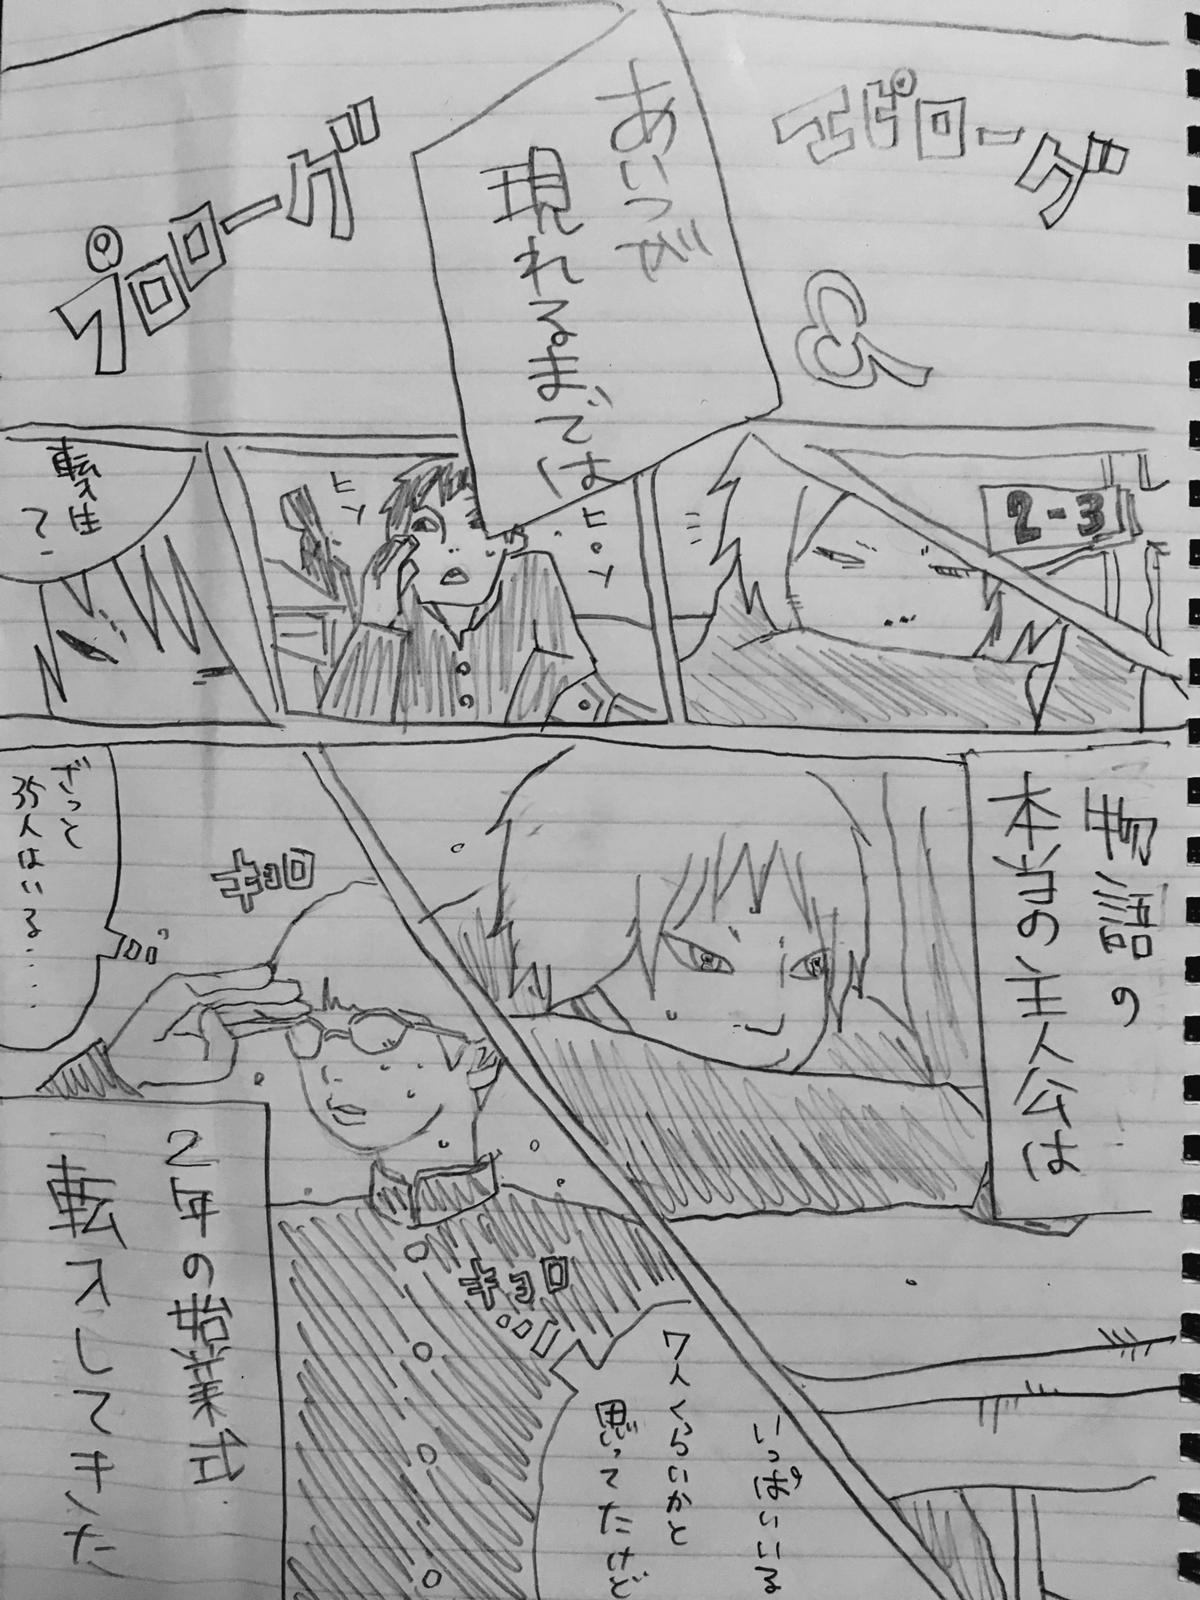 エピローグ
から
プロローグ
あいつが
現れるまでは
2-3
ヒソ
ヒソ
転入生
？
物語の
本当の主人公は
いっぱいいる
7人くらいかと
思ってたけど
キョロ
キョロ
ざっと
35人はいる……
2年の始業式
転入してきた